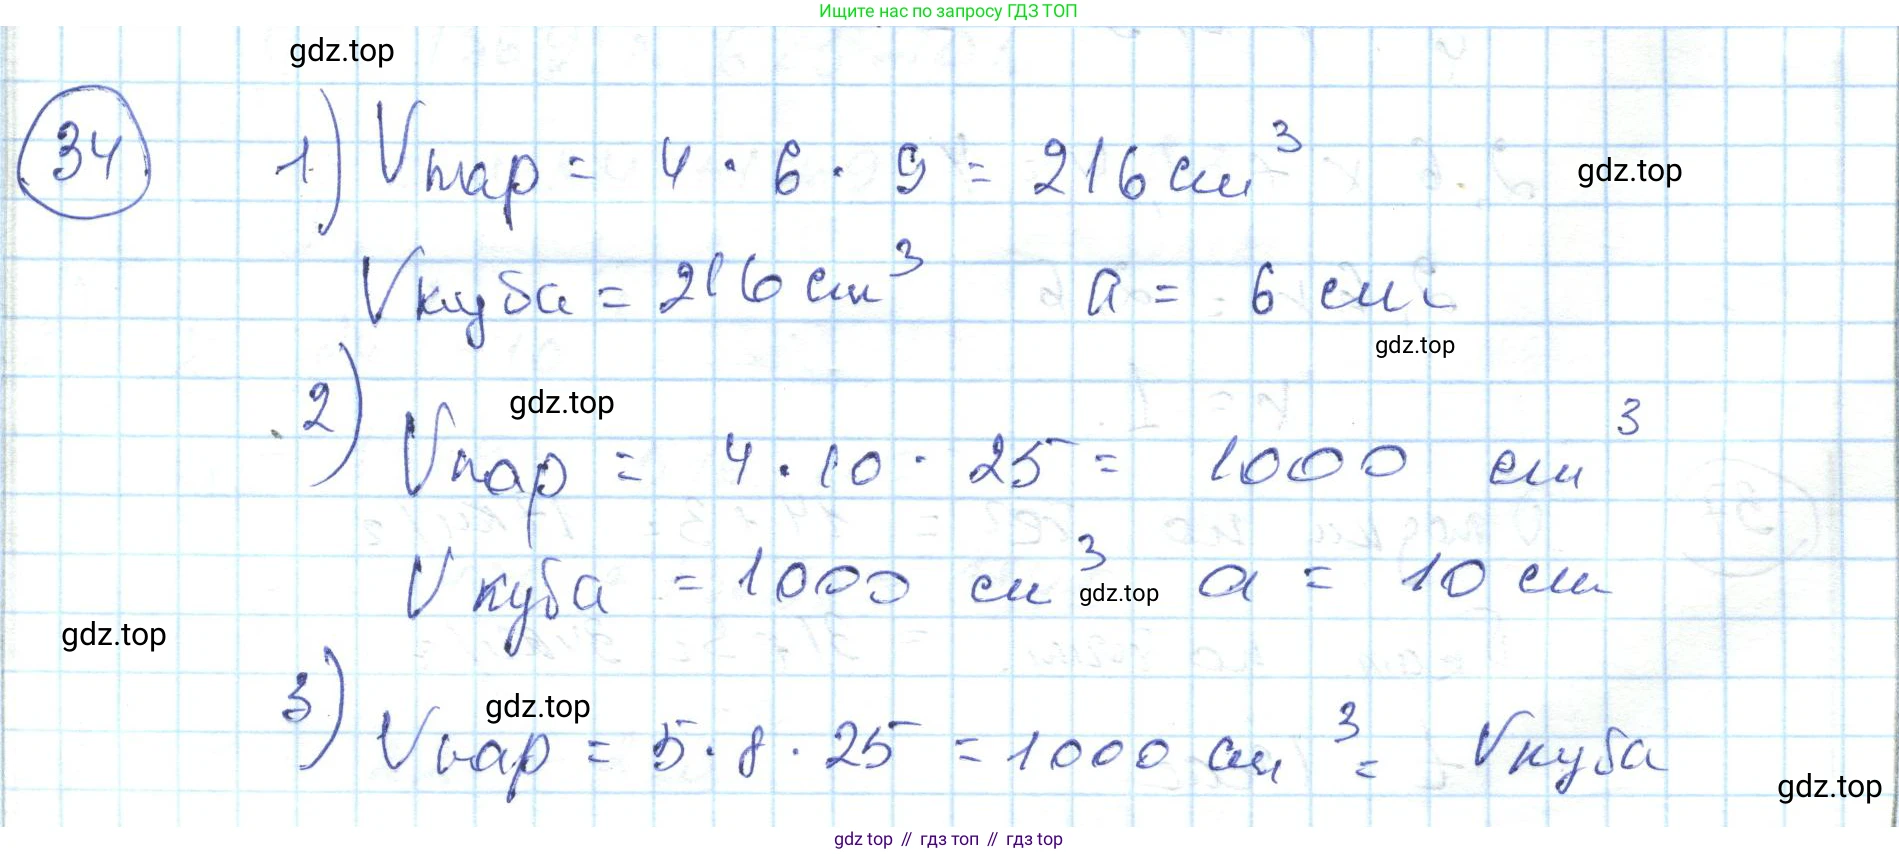 Ищите нас по запросу ГДЗ ТОП
gdz.top
34 1) Vпар = 4 · 6 · 9 = 216 см³
gdz.top
Vкуба = 216 см³ a = 6 см
gdz.top
gdz.top
2) Vпар = 4 · 10 · 25 = 1000 см³
Vкуба = 1000 см³ a = 10 см
gdz.top
gdz.top
gdz.top
3) Vпар = 5 · 8 · 25 = 1000 см³ = Vкуба
gdz.top
gdz.top // гдз топ // гдз top